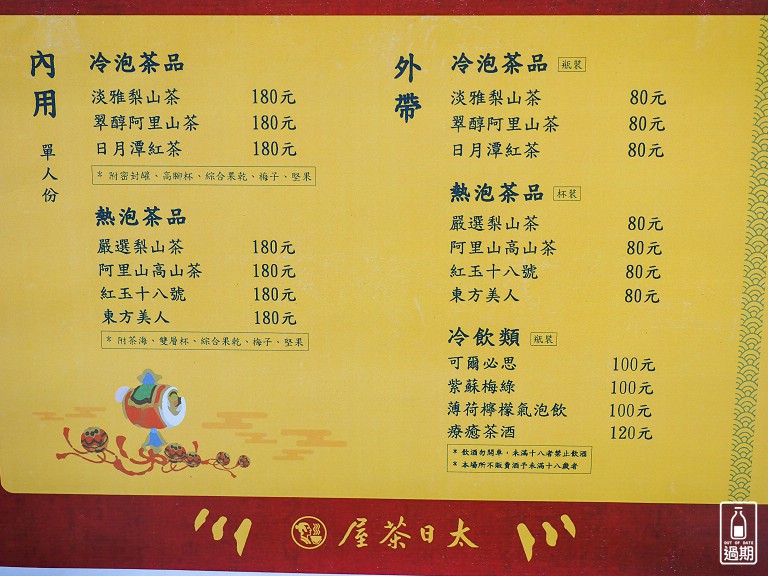 內用
單人份
冷泡茶品
淡雅梨山茶 180元
翠醇阿里山茶 180元
日月潭紅茶 180元
* 附密封罐、高腳杯、綜合果乾、梅子、堅果
熱泡茶品
嚴選梨山茶 180元
阿里山高山茶 180元
紅玉十八號 180元
東方美人 180元
* 附茶海、雙層杯、綜合果乾、梅子、堅果
外帶
冷泡茶品 瓶裝
淡雅梨山茶 80元
翠醇阿里山茶 80元
日月潭紅茶 80元
熱泡茶品 杯裝
嚴選梨山茶 80元
阿里山高山茶 80元
紅玉十八號 80元
東方美人 80元
冷飲類 瓶裝
可爾必思 100元
紫蘇梅綠 100元
薄荷檸檬氣泡飲 100元
療癒茶酒 120元
* 飲酒勿開車,未滿十八者禁止飲酒
* 本場所不販賣酒予未滿十八歲者
屋茶日太
OUT OF DATE
過期